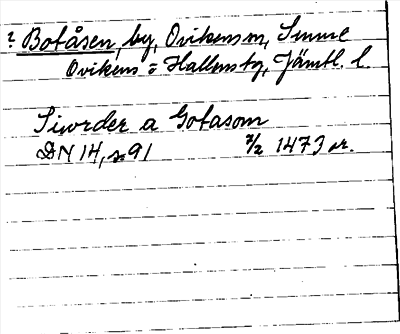 ? Botåsen, by, Ovikens sn, Sunne
Ovikens o Hallens tg, Jämtl. l.
Siwrder a Botasom
DN 14, s. 91 7/2 1473 or.